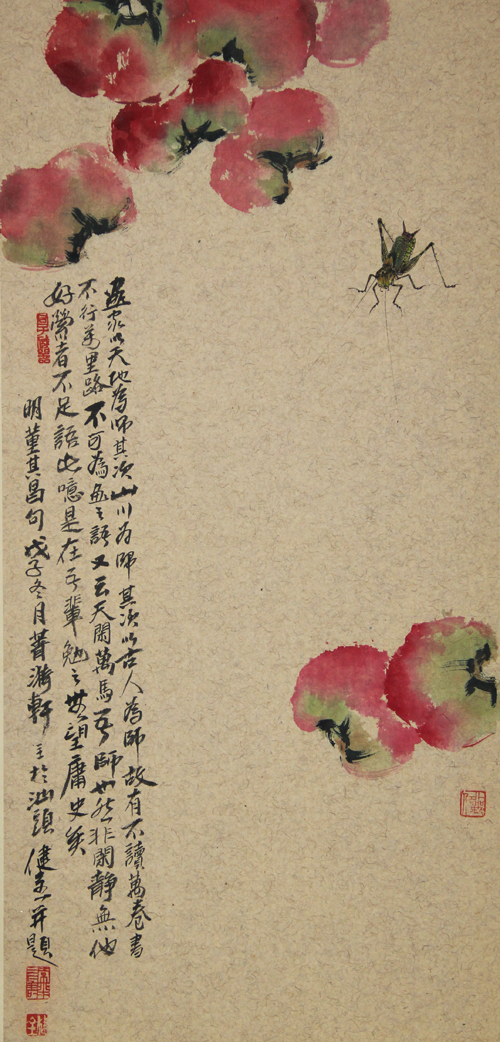 畫家以天地為師其次山川為師其次以古人為師故有不讀萬卷書
不行萬里路不可為畫之語又云天閑萬馬吾師也然非閑靜無他
好縈者不足語此噫是在吾輩勉之毋望庸史矣
明董其昌句戊子冬月菁漪軒主於汕頭健並題